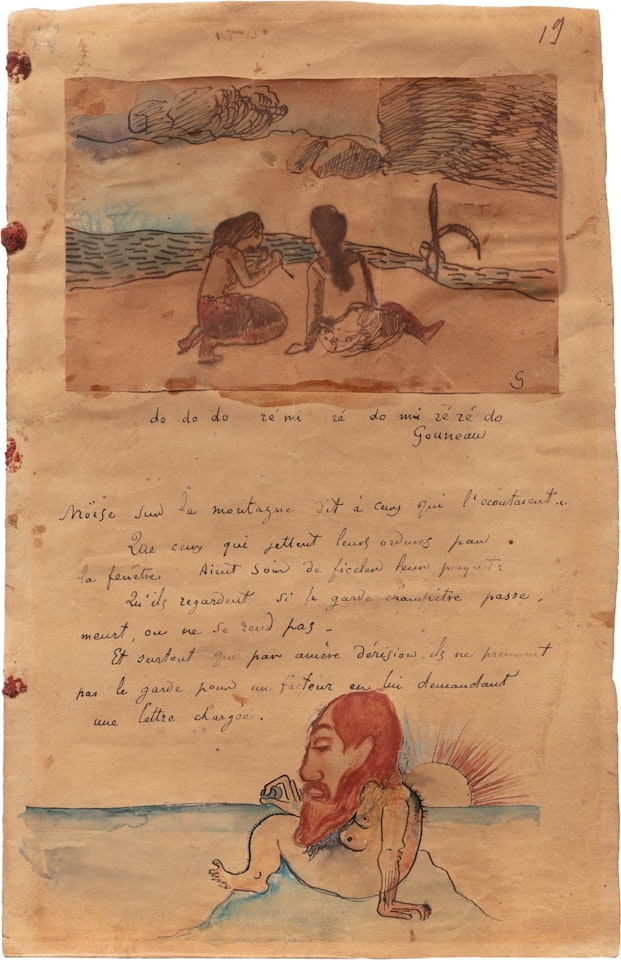 19
G
do do do ré mi ré do mi ré ré do
Gouneau
Moïse sur la montagne dit à ceux qui l'écoutaient..
Que ceux qui jettent leurs ordures par
la fenêtre Aient soin de ficeler leur paquet:
Qu'ils regardent si le garde champêtre passe,
meurt, ou ne se rend pas -
Et surtout que par amère dérision ils ne prennent
pas le garde pour un facteur en lui demandant
une lettre chargée.